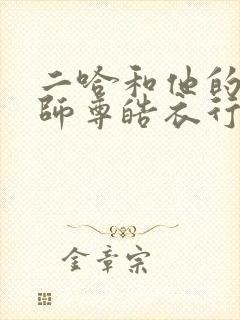 二哈和他的
師尊皓衣行
金章宗